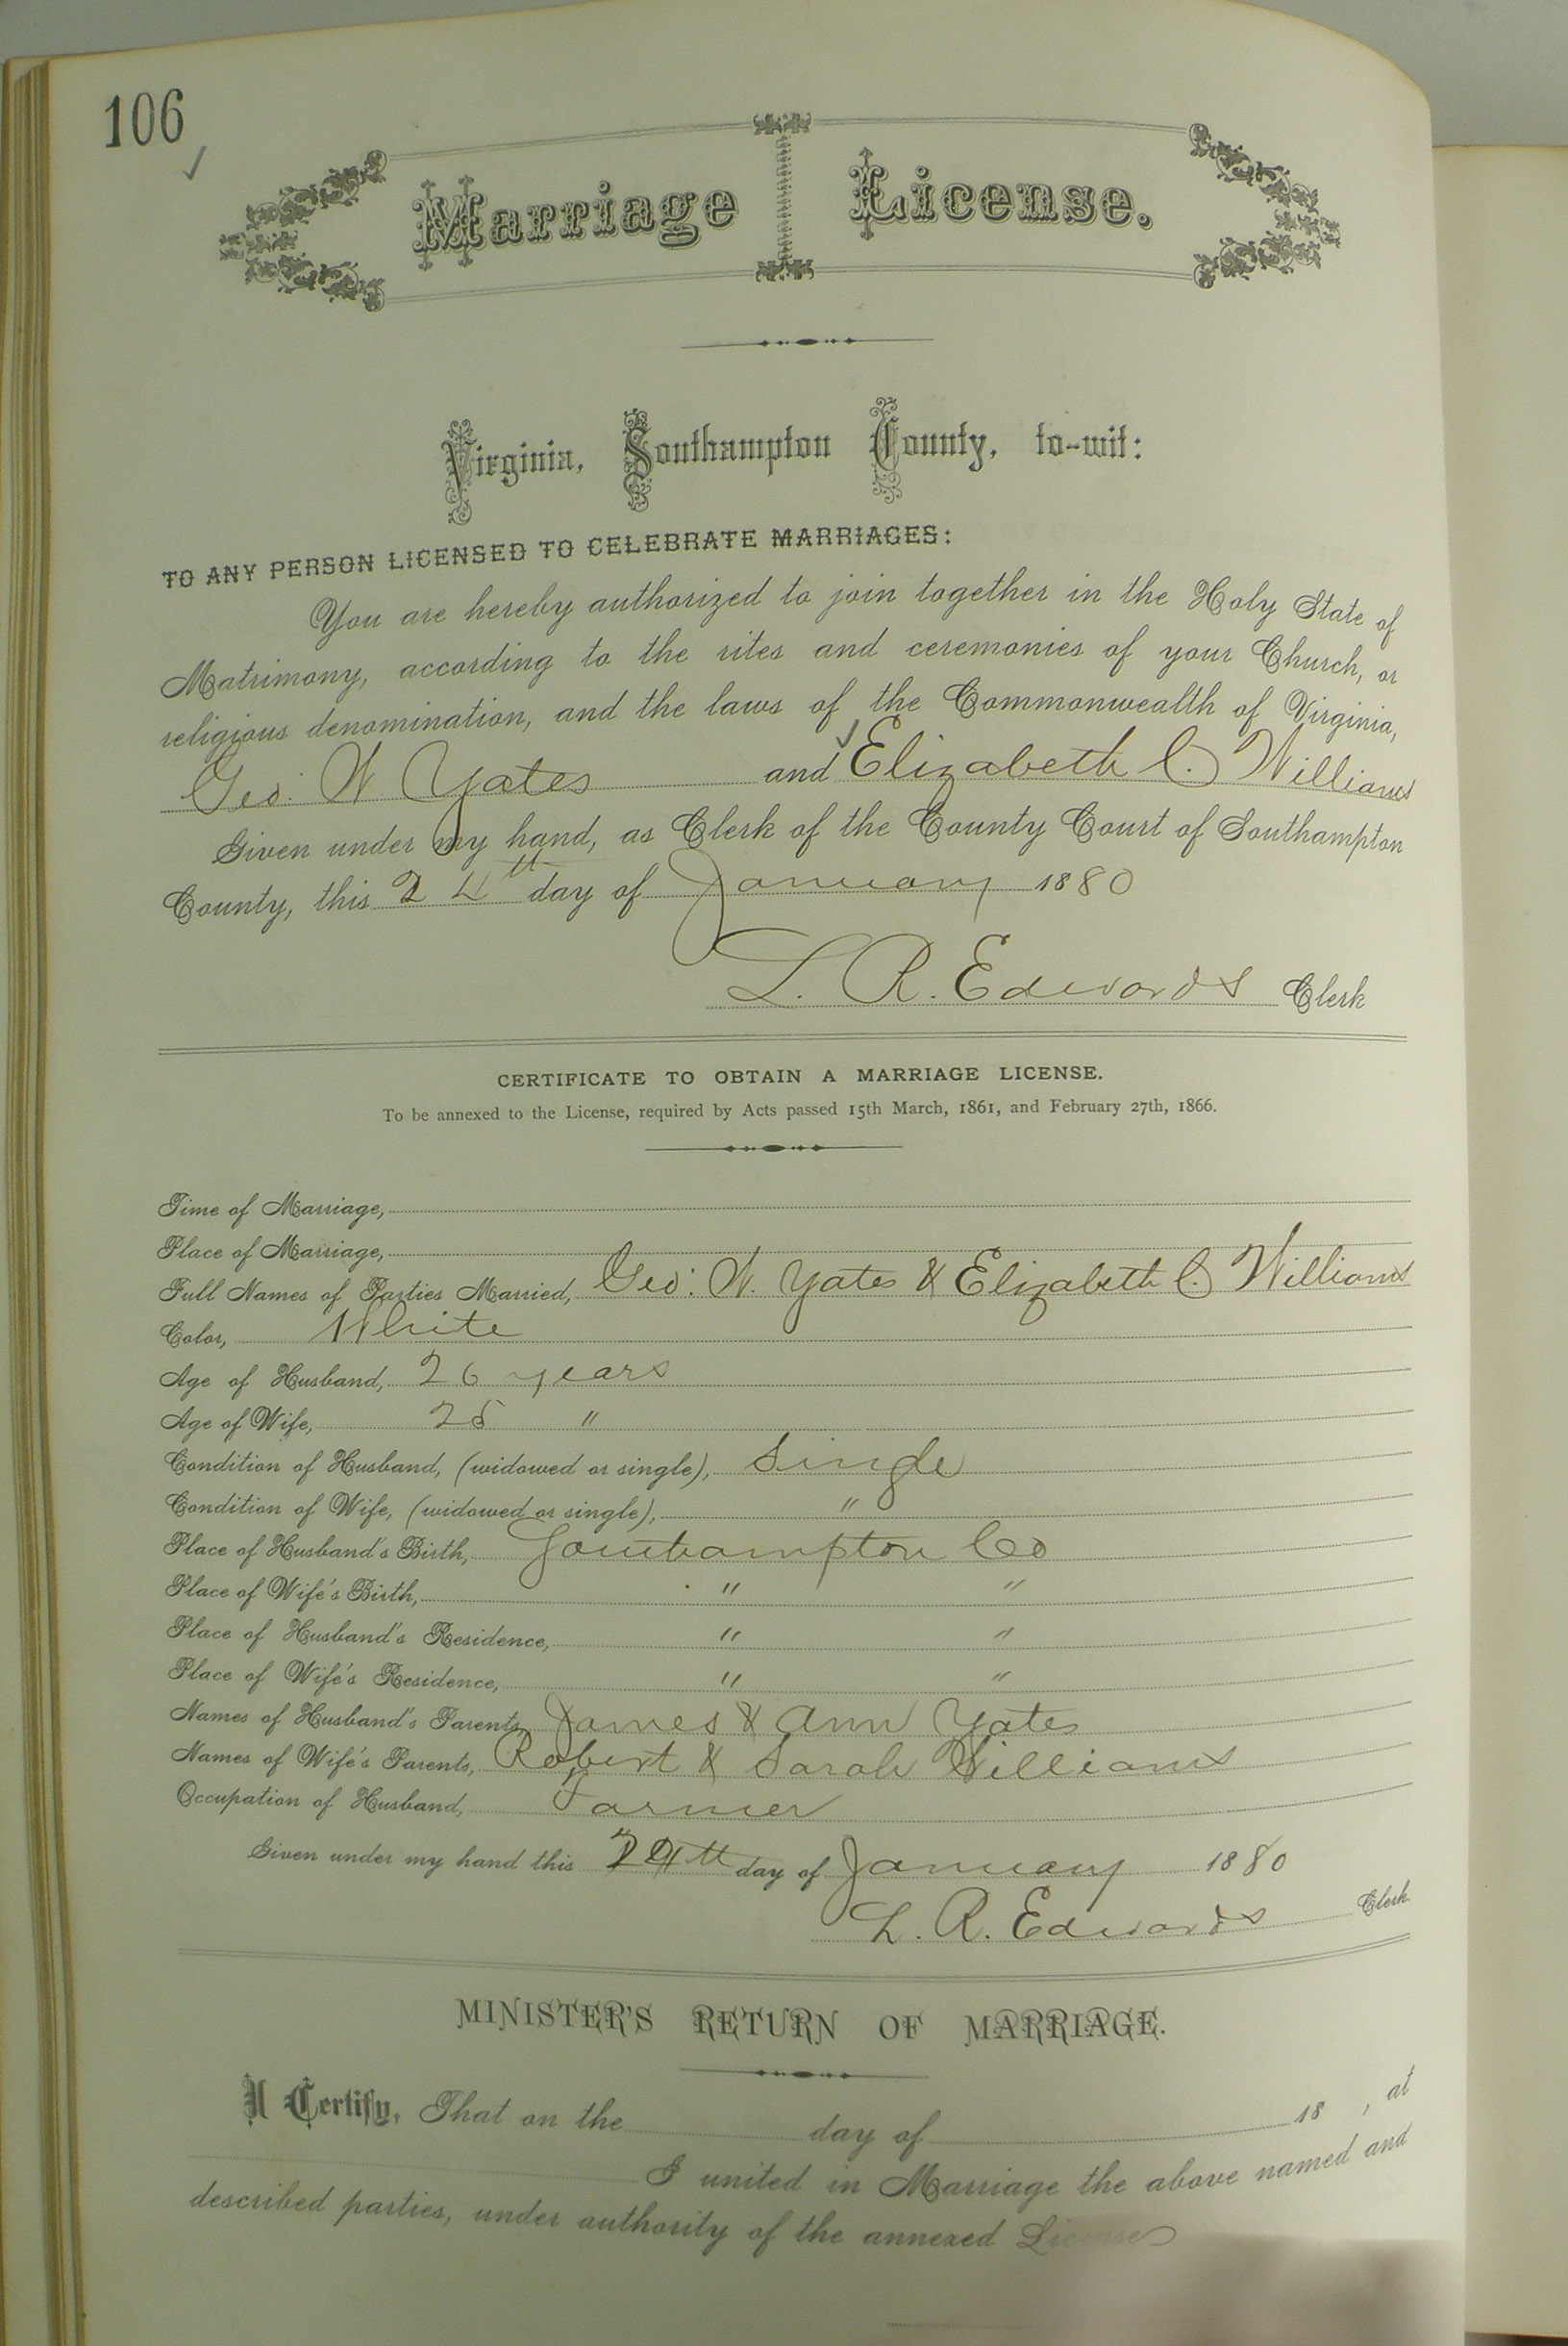 106
Marriage License.
Virginia, Southampton County, to-wit:
TO ANY PERSON LICENSED TO CELEBRATE MARRIAGES:
You are hereby authorized to join together in the Holy State of
Matrimony, according to the rites and ceremonies of your Church, or
religious denomination, and the laws of the Commonwealth of Virginia,
Geo. W. Yates and Elizabeth C. Williams
Given under my hand, as Clerk of the County Court of Southampton
County, this 24th day of January 1880
L. R. Edwards Clerk
CERTIFICATE TO OBTAIN A MARRIAGE LICENSE.
To be annexed to the License, required by Acts passed 15th March, 1861, and February 27th, 1866.
Time of Marriage,
Place of Marriage,
Full Names of Parties Married, Geo: W. Yates & Elizabeth C Williams
Color, White
Age of Husband, 26 years
Age of Wife, 25 "
Condition of Husband, (widowed or single), Single
Condition of Wife, (widowed or single), "
Place of Husband's Birth, Southampton Co
Place of Wife's Birth, " "
Place of Husband's Residence, " "
Place of Wife's Residence, " "
Names of Husband's Parents, James & Ann Yates
Names of Wife's Parents, Robert & Sarah Williams
Occupation of Husband, Farmer
Given under my hand this 24th day of January 1880
L. R. Edwards Clerk.
MINISTER'S RETURN OF MARRIAGE.
I Certify, That on the day of 18 , at
I united in Marriage the above named and
described parties, under authority of the annexed License